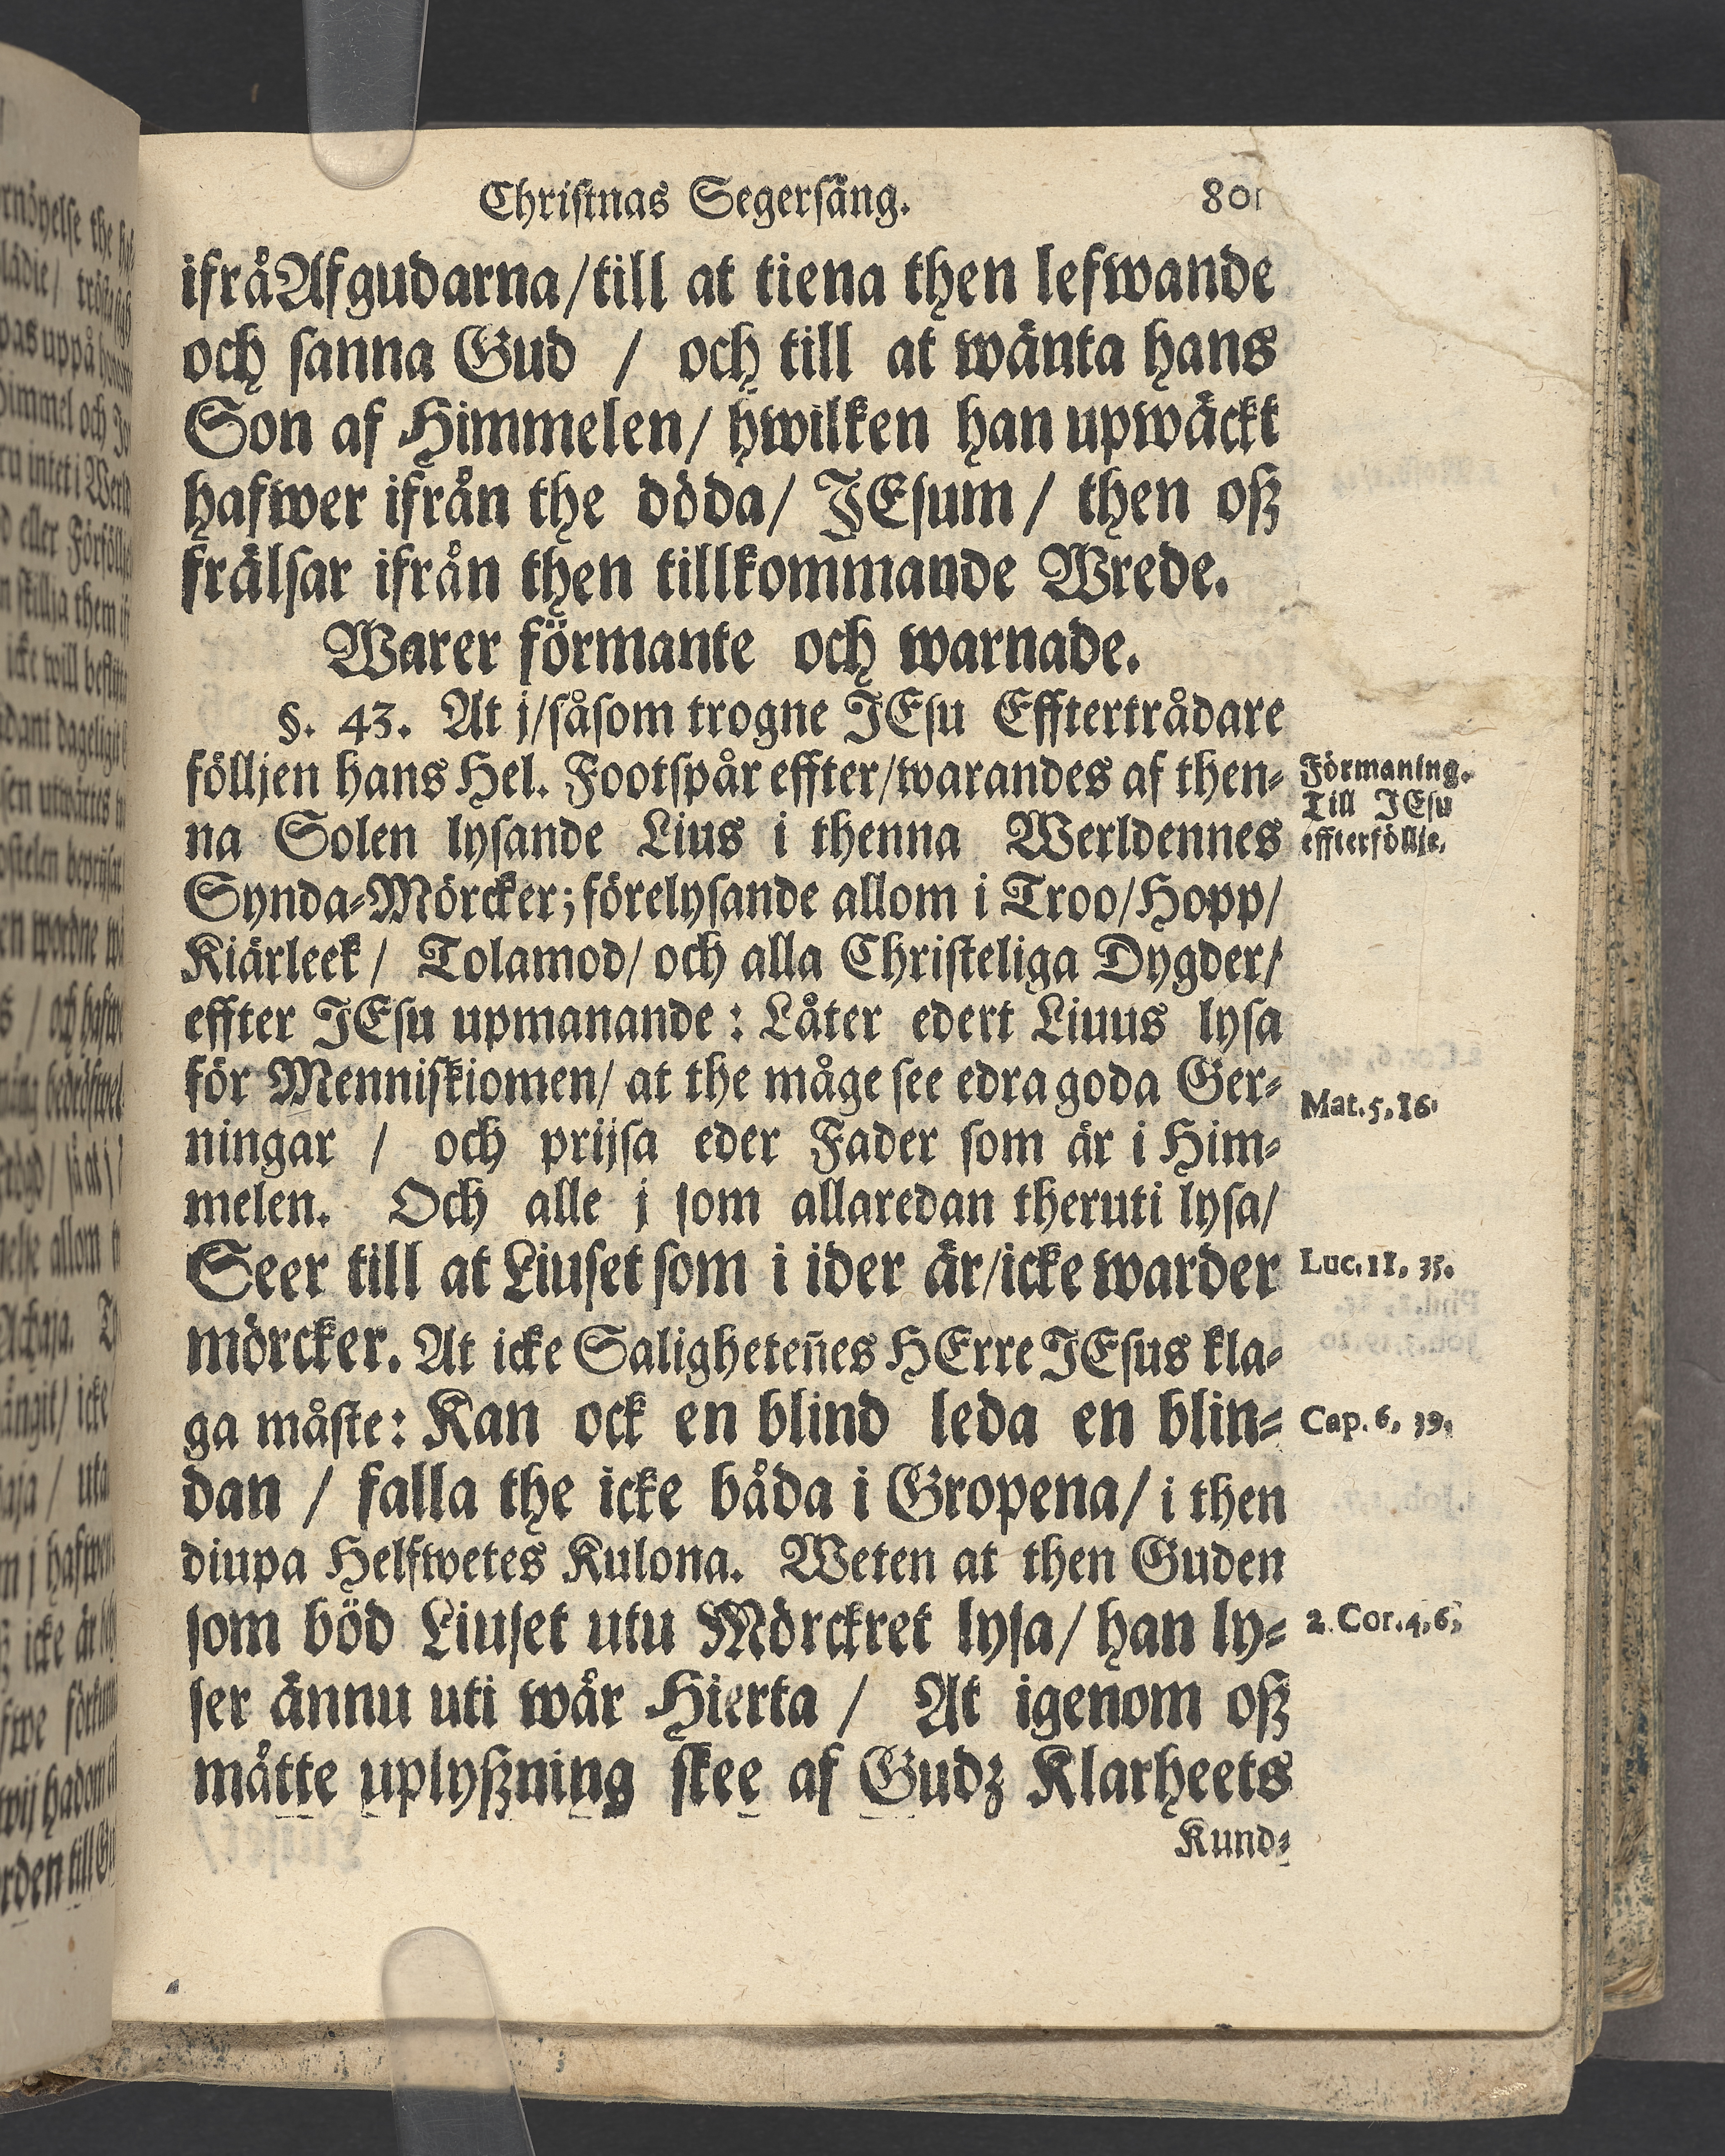 Christnas Segersång.
801
ifrå Afgudarna/till at tiena then lefwande
och sanna Gud / och till at wänta hans
Son af Himmelen/ hwilken han upwäckt
hafwer ifrån the döda/ JEsum / then oß
frälsar ifrån then tillkommande Wrede.
Warer förmante och warnade.
§. 43. At j/såsom trogne JEsu Efftertrådare
följjen hans Hel. Footspår effter/warandes af then-
na Solen lysande Lius i thenna Werldennes
Synda-Mörcker; förelysande allom i Troo/Hopp/
Kiärleek/ Tolamod/ och alla Christeliga Dygder/
effter JEsu upmanande: Låter edert Liuus lysa
för Menniskiomen/ at the måge see edra goda Ger-
ningar / och prijsa eder Fader som är i Him-
melen. Och alle j som allaredan theruti lysa/
Seer till at Liuset som i ider är/icke warder
mörcker. At icke Saligheten̄es HErre JEsus kla-
ga måste: Kan ock en blind leda en blin-
dan / falla the icke båda i Gropena/ i then
diupa Helfwetes Kulona. Weten at then Guden
som böd Liuset utu Mörckret lysa/ han ly-
ser ännu uti wår Hierta / At igenom oß
måtte uplyßning skee af Gudz Klarheets
Kund-
Förmaning.
Till JEsu
effterföllje.
Mat. 5, 16.
Luc. 11, 35.
Cap. 6, 39.
2. Cor. 4, 6,